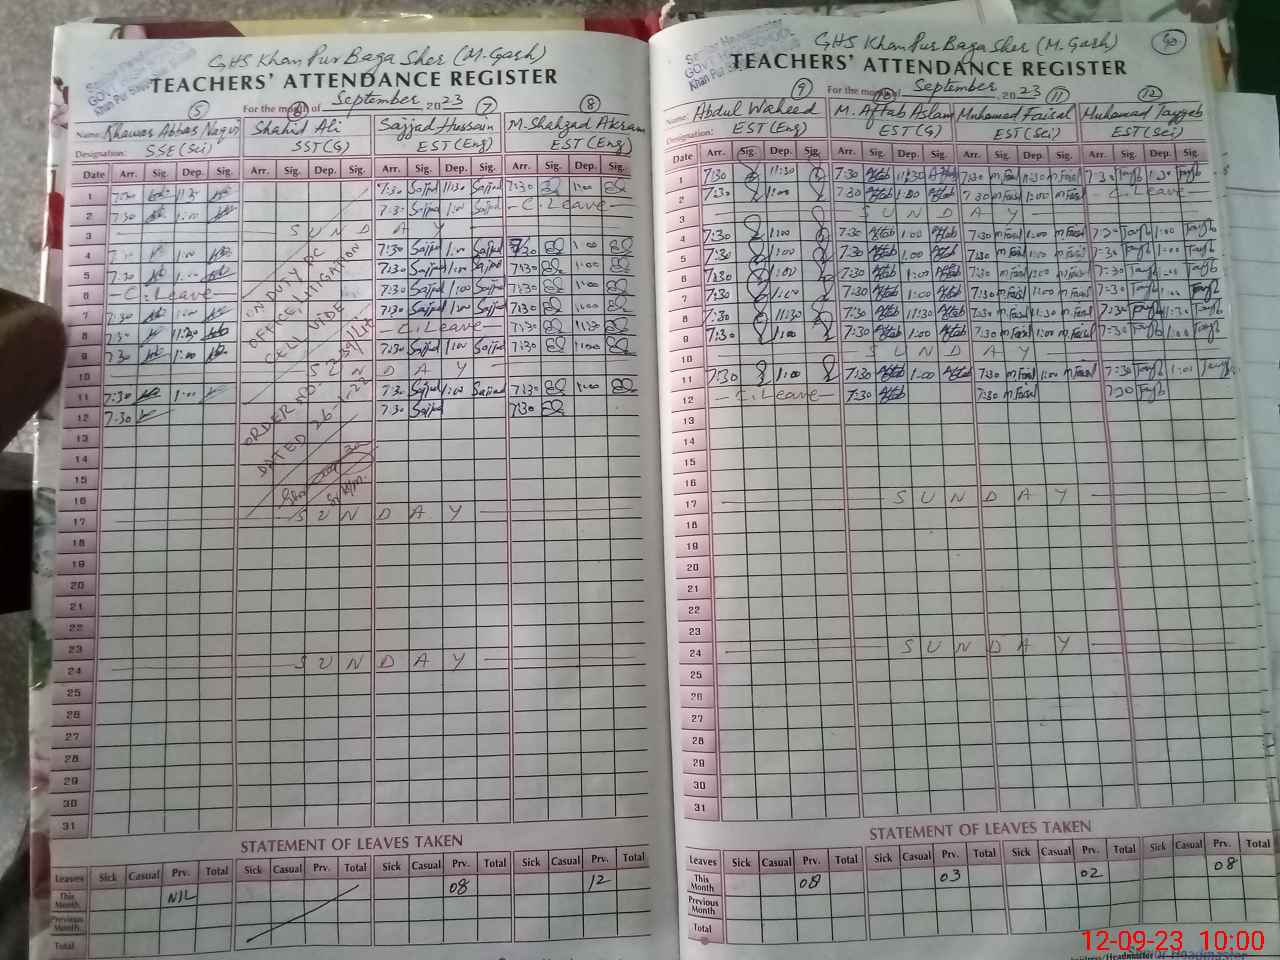 GHS Khan Pur Baga Sher (M. Garh)
TEACHERS' ATTENDANCE REGISTER
For the month of September 2023
5 6 7 8
Name: Khawar Abbas Naqvi Shahid Ali Sajjad Hussain M. Shahzad Akram
Designation: SSE (Sci) SST (G) EST (Eng) EST (Eng)
Date Arr. Sig. Dep. Sig. Arr. Sig. Dep. Sig. Arr. Sig. Dep. Sig. Arr. Sig. Dep. Sig.
1 7:30 11:30 7:30 Sajjad 11:30 Sajjad 7:30 1:00
2 7:30 1:00 7:30 Sajjad 1:00 Sajjad - C. Leave -
3 SUNDAY
4 7:30 1:00 7:30 Sajjad 1:00 Sajjad 7:30 1:00
5 7:30 1:00 7:30 Sajjad 1:00 Sajjad 7:30 1:00
6 - C. Leave - 7:30 Sajjad 1:00 Sajjad 7:30 1:00
7 7:30 1:00 7:30 Sajjad 1:00 Sajjad 7:30 1:00
8 7:30 11:30 - C. Leave - 7:30 11:30
9 7:30 1:00 7:30 Sajjad 1:00 Sajjad 7:30 1:00
10 SUNDAY
11 7:30 1:00 7:30 Sajjad 1:00 Sajjad 7:30 1:00
12 7:30 7:30 Sajjad 7:30
13
14
15
16
17 SUNDAY
18
19
20
21
22
23
24 SUNDAY
25
26
27
28
29
30
31
ON DUTY DC
OFFICE, LITIGATION
CELL VIDE
ORDER NO.
DATED 26-
STATEMENT OF LEAVES TAKEN
Leaves Sick Casual Prv. Total Sick Casual Prv. Total Sick Casual Prv. Total Sick Casual Prv. Total
This Month NIL 08 12
Previous Month
Total
GHS Khan Pur Baga Sher (M. Garh)
TEACHERS' ATTENDANCE REGISTER
For the month of September 2023
9 10 11 12
Name: Abdul Waheed M. Aftab Aslam Muhamad Faisal Muhamad Tayyab
Designation: EST (Eng) EST (G) EST (Sci) EST (Sci)
Date Arr. Sig. Dep. Sig. Arr. Sig. Dep. Sig. Arr. Sig. Dep. Sig. Arr. Sig. Dep. Sig.
1 7:30 11:30 7:30 Aftab 11:30 Aftab 7:30 M Faisal 11:30 M Faisal 7:30 Tayyb 11:30 Tayyb
2 7:30 1:00 7:30 Aftab 1:00 Aftab 7:30 M Faisal 1:00 M Faisal C. Leave -
3 SUNDAY
4 7:30 1:00 7:30 Aftab 1:00 Aftab 7:30 M Faisal 1:00 M Faisal 7:30 Tayyb 1:00 Tayyb
5 7:30 1:00 7:30 Aftab 1:00 Aftab 7:30 M Faisal 1:00 M Faisal 7:30 Tayyb 1:00 Tayyb
6 7:30 1:00 7:30 Aftab 1:00 Aftab 7:30 M Faisal 1:00 M Faisal 7:30 Tayyb 1:00 Tayyb
7 7:30 1:00 7:30 Aftab 1:00 Aftab 7:30 M Faisal 1:00 M Faisal 7:30 Tayyb 1:00 Tayyb
8 7:30 11:30 7:30 Aftab 11:30 Aftab 7:30 M Faisal 11:30 M Faisal 7:30 Tayyb 11:30 Tayyb
9 7:30 1:00 7:30 Aftab 1:00 Aftab 7:30 M Faisal 1:00 M Faisal 7:30 Tayyb 1:00 Tayyb
10 SUNDAY
11 7:30 1:00 7:30 Aftab 1:00 Aftab 7:30 M Faisal 1:00 M Faisal 7:30 Tayyb 1:00 Tayyb
12 - C. Leave - 7:30 Aftab 7:30 M Faisal 7:30 Tayyb
13
14
15
16
17 SUNDAY
18
19
20
21
22
23
24 SUNDAY
25
26
27
28
29
30
31
STATEMENT OF LEAVES TAKEN
Leaves Sick Casual Prv. Total Sick Casual Prv. Total Sick Casual Prv. Total Sick Casual Prv. Total
This Month 08 03 02 08
Previous Month
Total
12-09-23 10:00
Headmaster